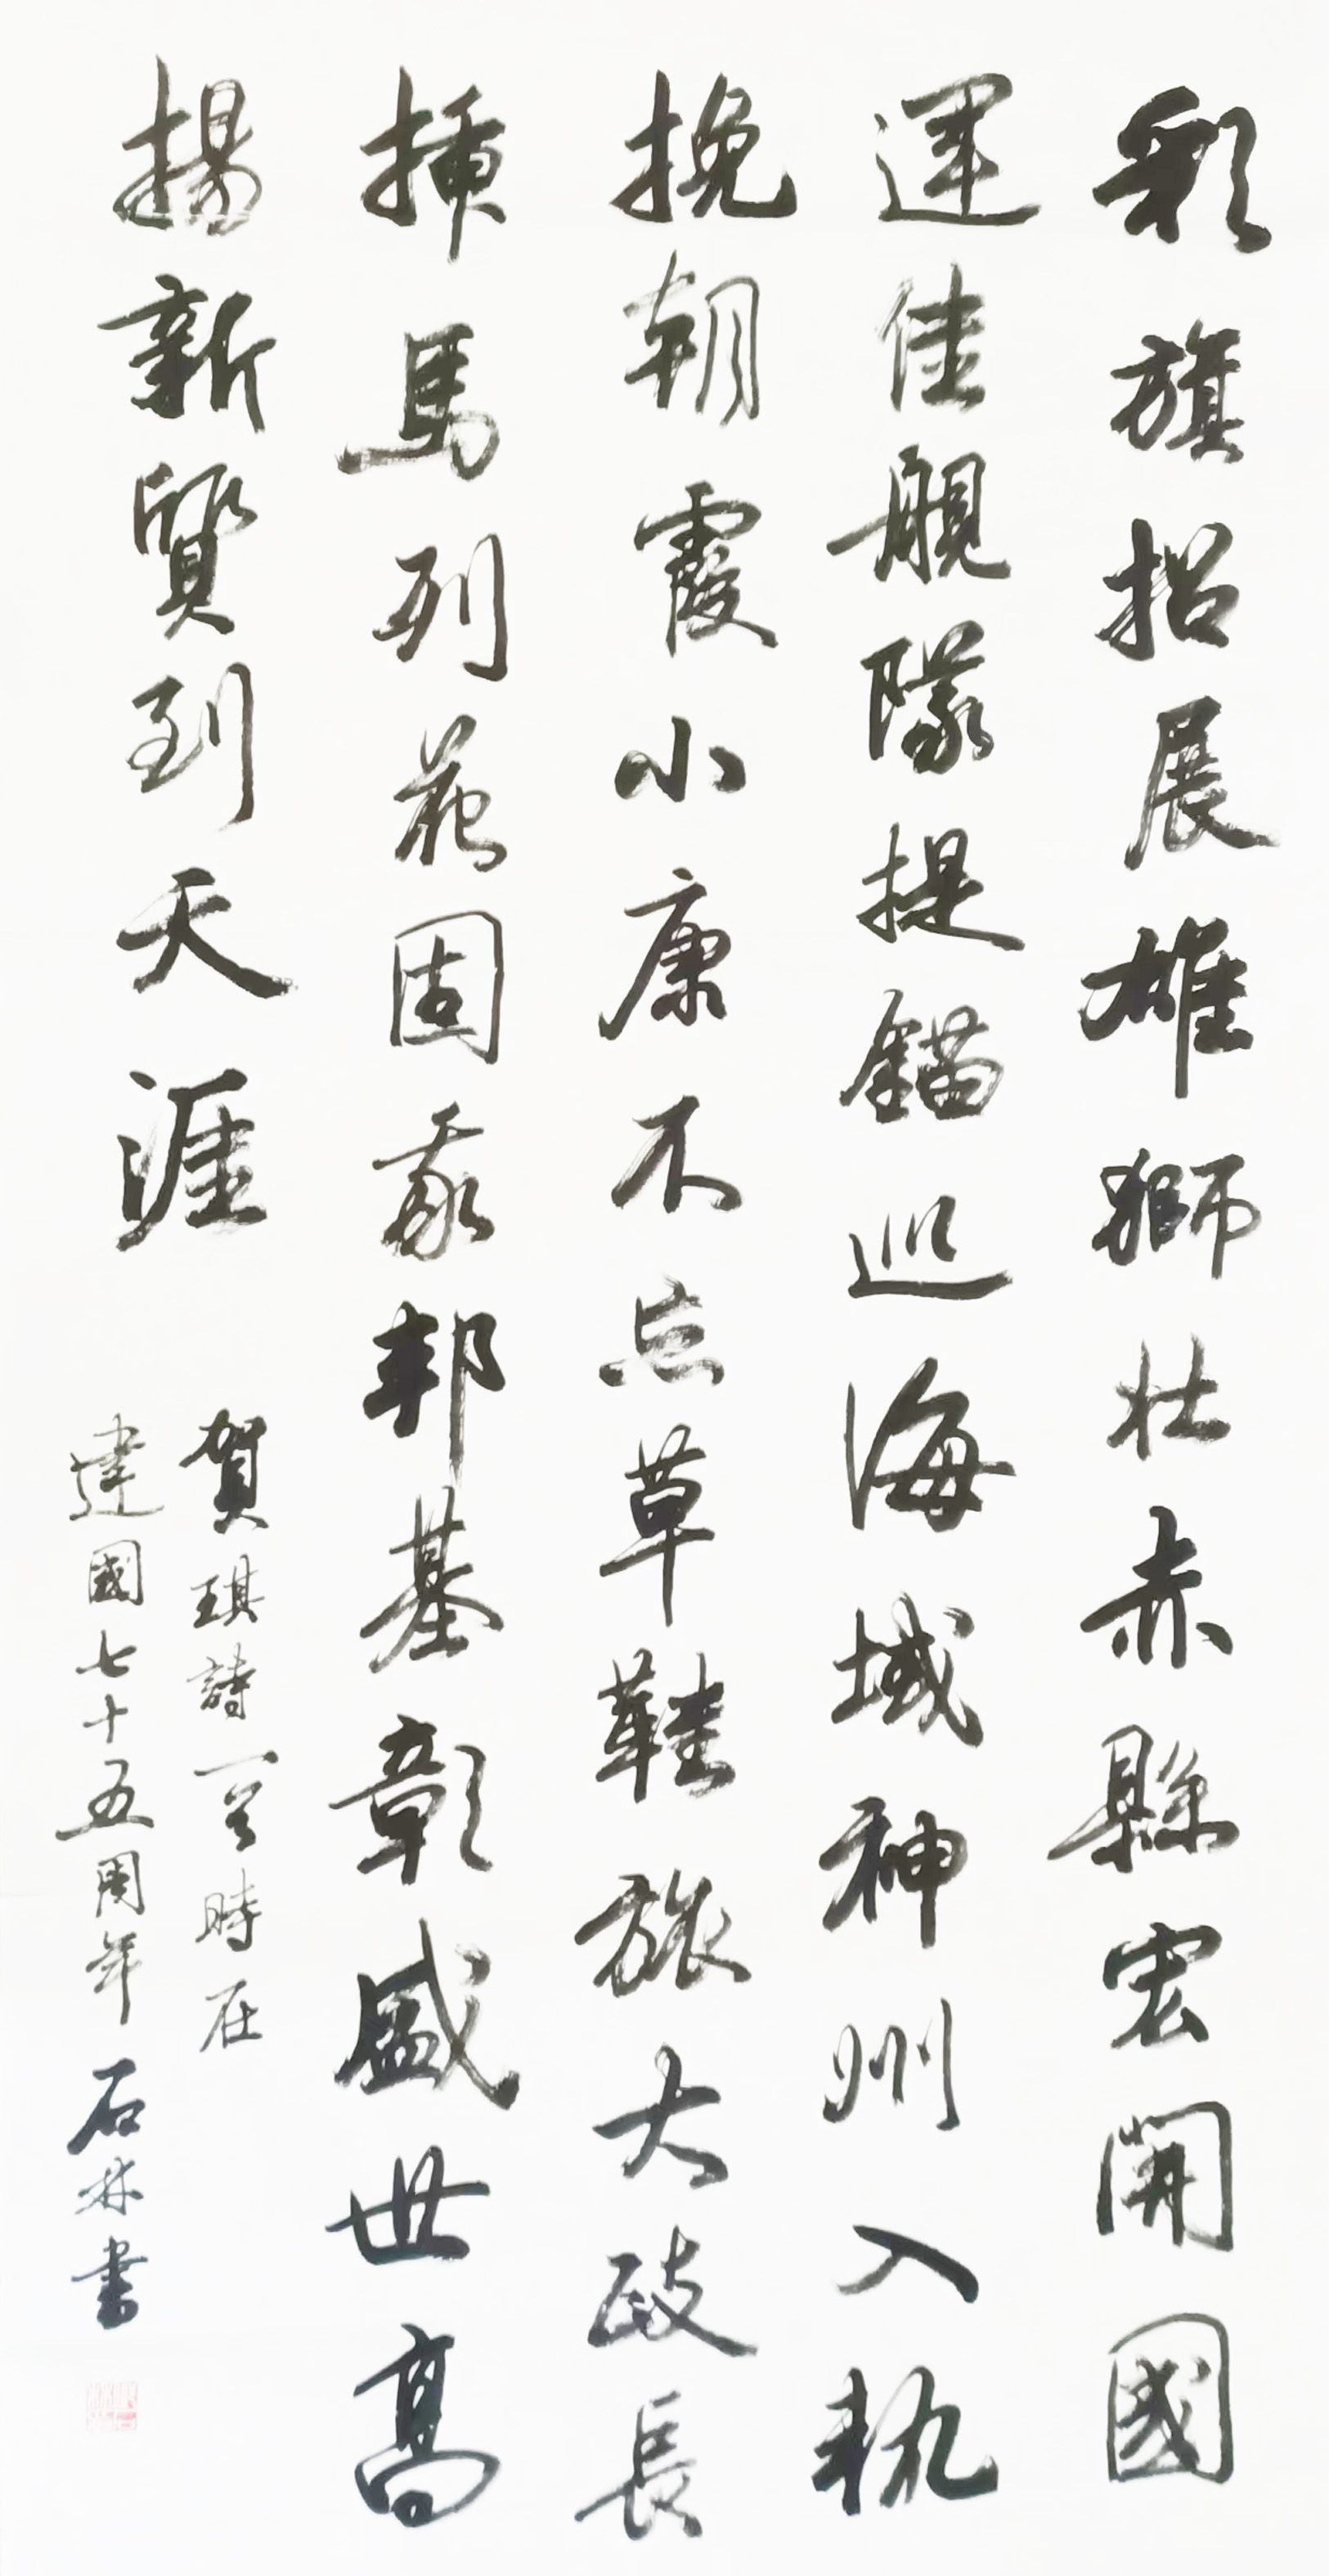 彩旗招展雄獅壯赤縣宏開國
運佳舰隊提錨巡海域神州入軌
挽朝霞小康不忘草鞋旅大政長
插馬列花固我邦基彰盛世高
揚新質到天涯
賀琪詩一首時在
建國七十五周年石林書